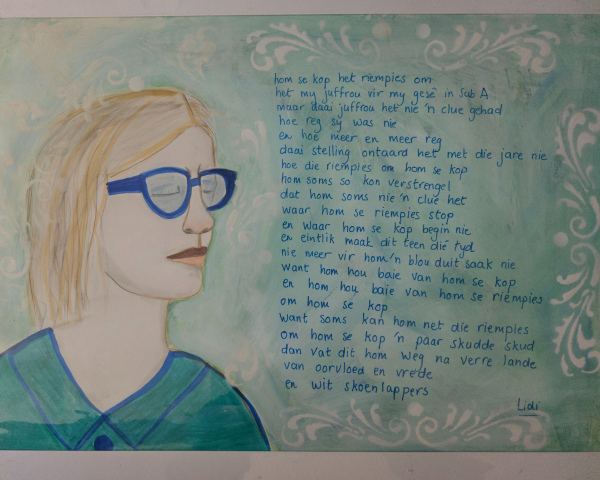 hom se kop het riempies om
het my juffrou vir my gesê in Sub A
maar daai juffrou het nie 'n clue gehad
hoe reg sy was nie
en hoe meer en meer reg
daai stelling ontaard het met die jare nie
hoe die riempies om hom se kop
hom soms so kon verstrengel
dat hom soms nie 'n clue het
waar hom se riempies stop
en waar hom se kop begin nie
en eintlik maak dit teen dié tyd
nie meer vir hom 'n blou duit saak nie
want hom hou baie van hom se kop
en hom hou baie van hom se riempies
om hom se kop
want soms kan hom net die riempies
om hom se kop 'n paar skudde skud
dan vat dit hom weg na verre lande
van oorvloed en vrede
en wit skoenlappers
Lidi